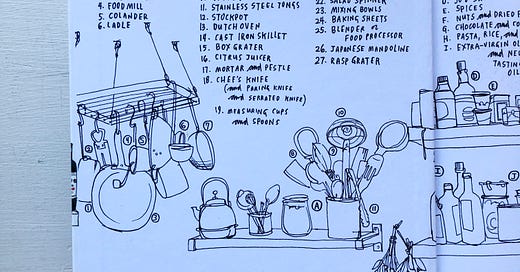 4. FOOD MILL
5. COLANDER
6. LADLE
11. STAINLESS STEEL TONGS
12. STOCKPOT
13. DUTCH OVEN
14. CAST IRON SKILLET
15. BOX GRATER
16. CITRUS JUICER
17. MORTAR and PESTLE
18. CHEF'S KNIFE
(and PARING KNIFE
and SERRATED KNIFE)
19. MEASURING CUPS
and SPOONS
23. MIXING BOWLS
24. BAKING SHEETS
25. BLENDER or
FOOD PROCESSOR
26. JAPANESE MANDOLINE
27. RASP GRATER
E. SPICES
F. NUTS and DRIED F
G. CHOCOLATE and CO
H. PASTA, RICE, and
I. EXTRA-VIRGIN OL
and NE
TASTING
OIL
A
E
I
J